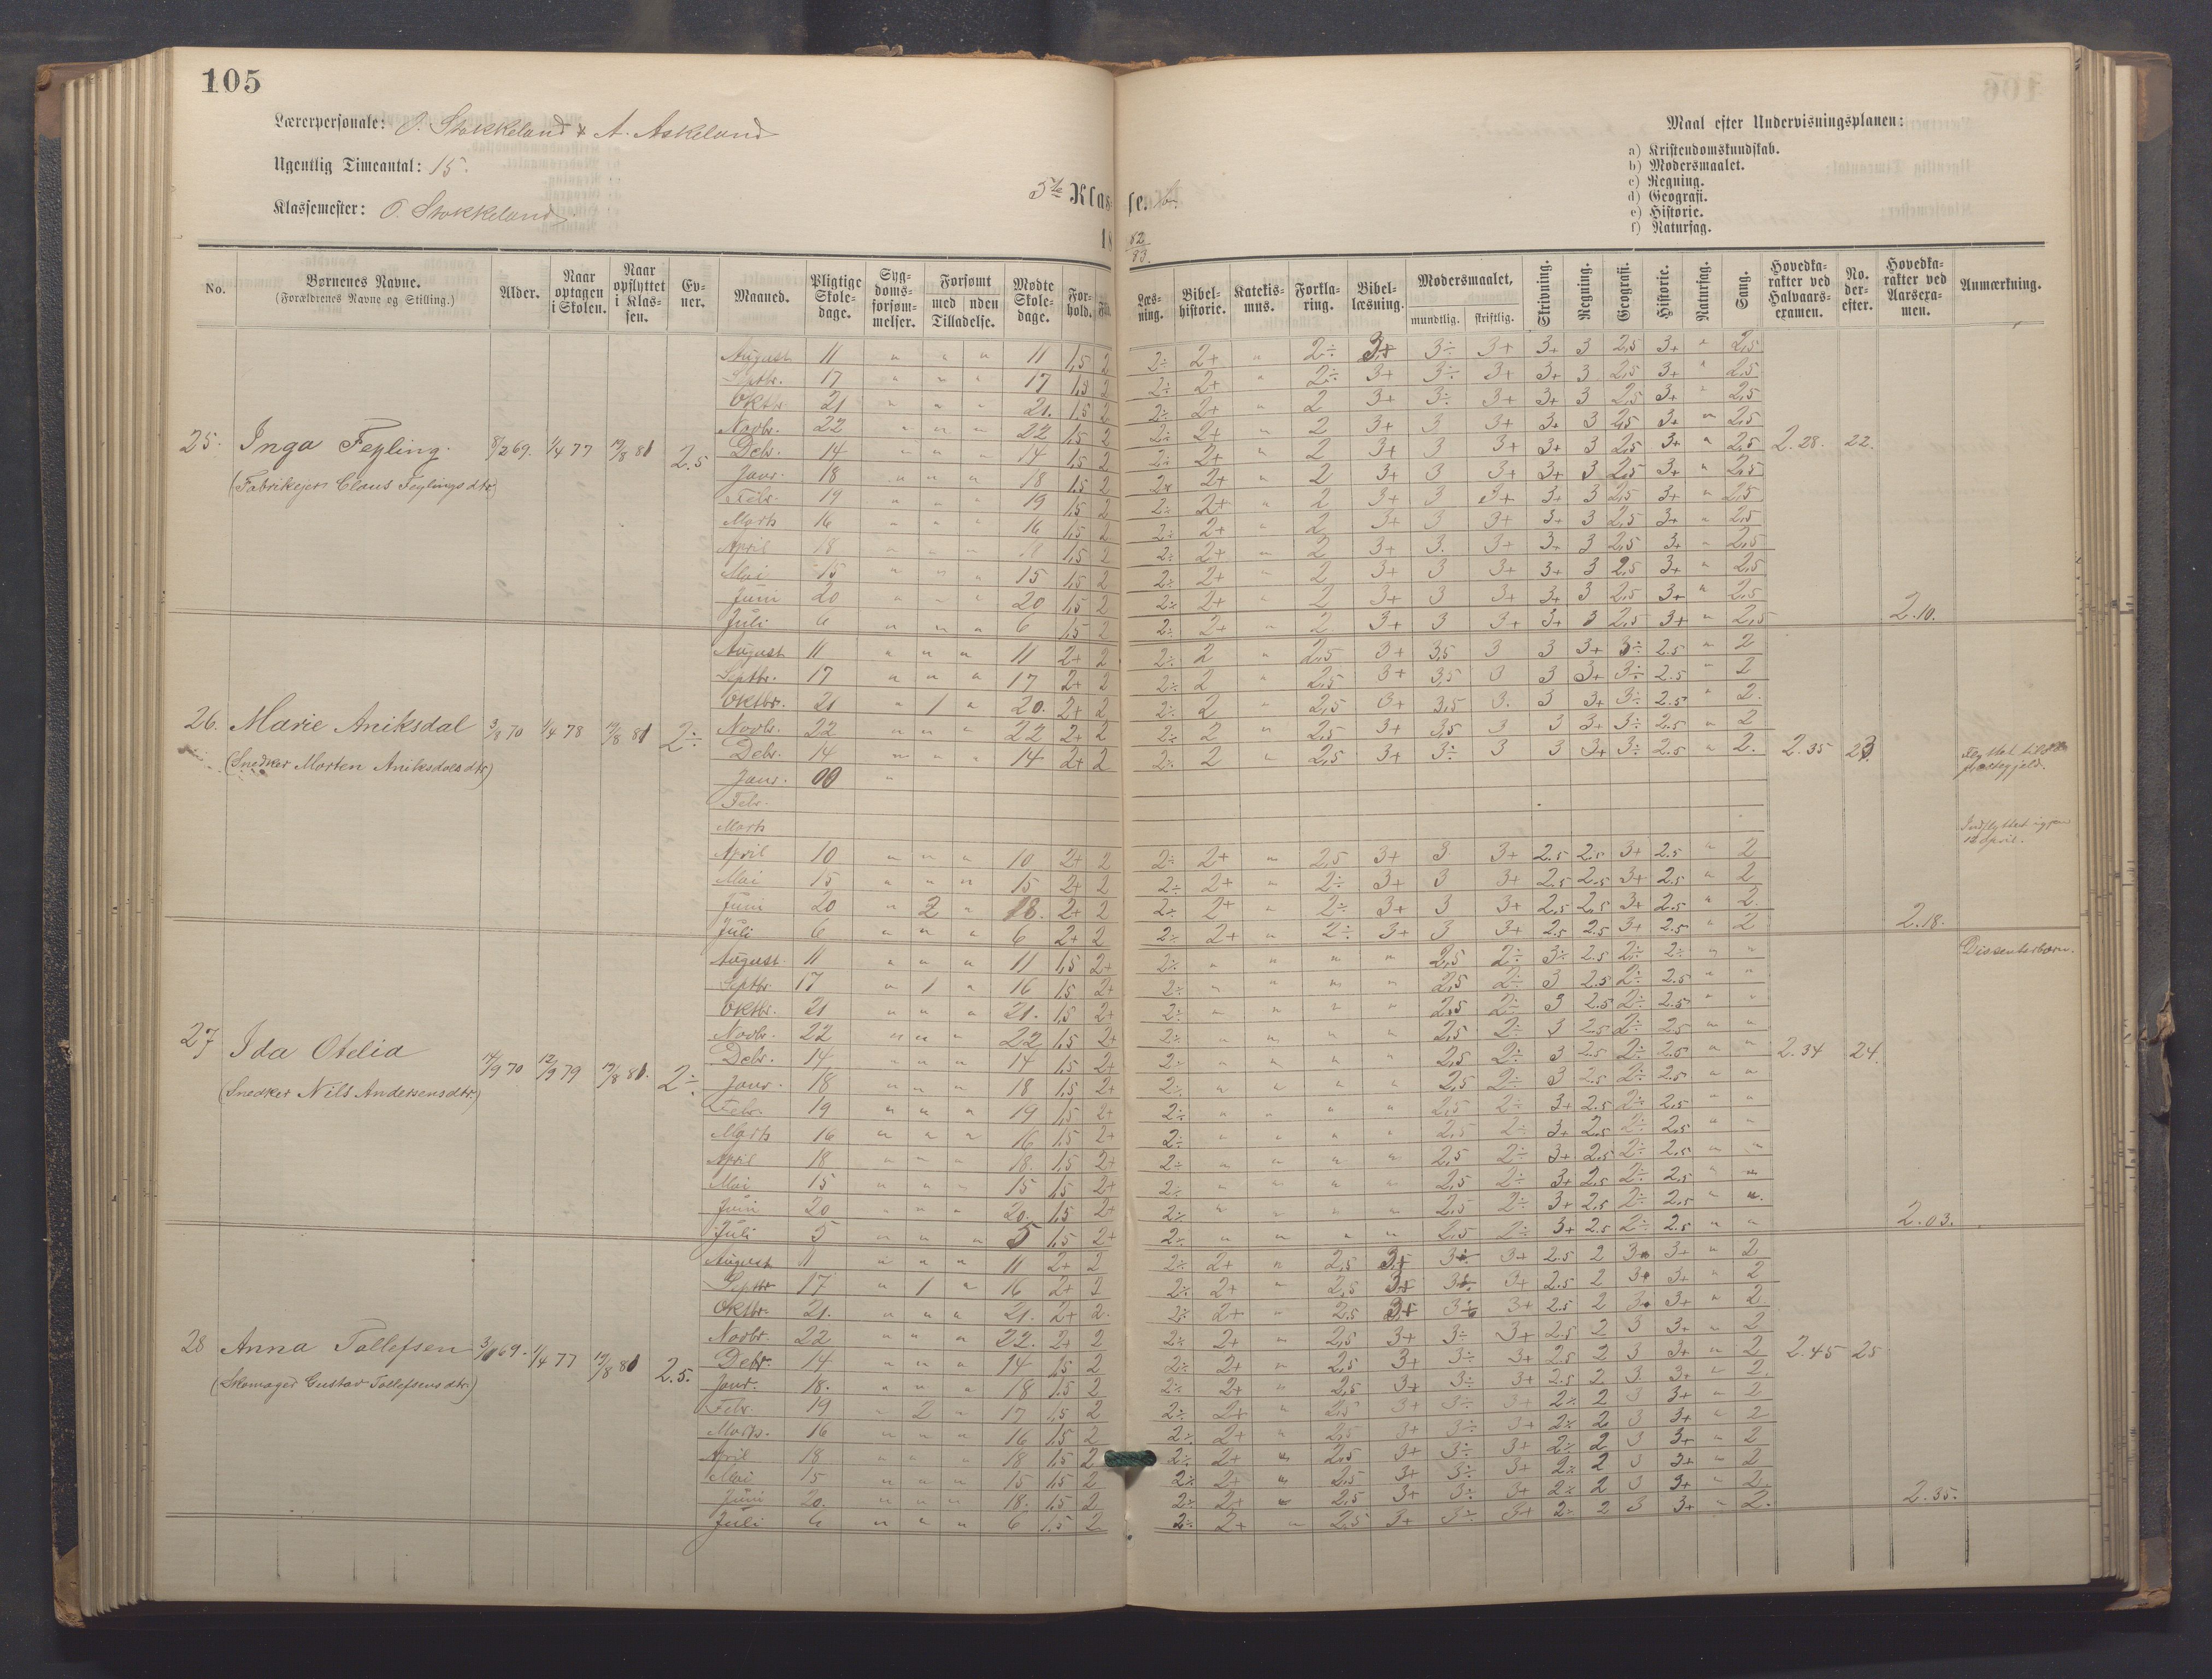 105
Lærerpersonale: O. Stokkeland & A. Askeland
Ugentlig Timeantal: 15.
Klassemester: O. Stokkeland
5te Klasse. b.
18 82/83.
Maal efter Undervisningsplanen:
a) Kristendomskundskab.
b) Modersmaalet.
c) Regning.
d) Geografi.
e) Historie.
f) Naturfag.
No. Børnenes Navne. (Forældrenes Navne og Stilling.) Alder. Naar optagen i Skolen. Naar opflyttet i Klassen. Evner. Maaned. Pligtige Skoledage. Sygdomsforsømmelser. Forsømt med uden Tilladelse. Mødte Skoledage. Forhold. Flid. Læsning. Bibelhistorie. Katekismus. Forklaring. Bibellæsning. Modersmaalet, mundtlig. skriftlig. Skrivning. Regning. Geografi. Historie. Naturfag. Sang. Hovedkarakter ved Halvaarsexamen. No. derefter. Hovedkarakter ved Aarsexamen. Anmærkning.
August 11 " " " 11 1,5 2 2÷ 2+ " 2÷ 3+ 3÷ 3+ 3+ 3 2,5 3+ " 2,5
Septbr. 17 " " " 17 1,5 2 2÷ 2+ " 2÷ 3+ 3÷ 3+ 3+ 3 2,5 3+ " 2,5
Oktbr. 21 " " " 21. 1,5 2 2÷ 2+ " 2 3+ 3÷ 3+ 3+ 3 2,5 3+ " 2,5
Novbr. 22 " " " 22 1,5 2 2÷ 2+ " 2 3+ 3 3+ 3+ 3 2,5 3+ " 2,5
25. Inga Feyling. 8/2 69. 1/4 77 19/8 81 2.5 Debr. 14 " " " 14 1,5 2 2÷ 2+ " 2 3+ 3 3+ 3+ 3 2,5 3+ " 2,5 2.28. 22.
(Fabrikejer Claus Feylings dtr.) Janr. 18 " " " 18 1,5 2 2÷ 2+ " 2 3+ 3 3+ 3+ 3 2,5 3+ " 2,5
Febr. 19 " " " 19 1,5 2 2÷ 2+ " 2 3+ 3 3+ 3+ 3 2,5 3+ " 2,5
Marts 16 " " " 16 1,5 2 2÷ 2+ " 2 3+ 3 3+ 3+ 3 2,5 3+ " 2,5
April 18 " " " 18 1,5 2 2÷ 2+ " 2 3+ 3. 3+ 3+ 3 2,5 3+ " 2,5
Mai 15 " " " 15 1,5 2 2÷ 2+ " 2 3+ 3 3+ 3+ 3 2,5 3+ " 2,5
Juni 20 " " " 20 1,5 2 2÷ 2+ " 2 3+ 3 3+ 3+ 3 2,5 3+ " 2,5
Juli 6 " " " 6 1,5 2 2÷ 2+ " 2 3+ 3 3+ 3+ 3 2,5 3+ " 2,5 2.10.
August 11 " " " 11 2+ 2 2÷ 2 " 2,5 3+ 3,5 3 3 3+ 3÷ 2.5 " 2
Septbr. 17 " " " 17 2+ 2 2÷ 2 " 2,5 3+ 3,5 3 3 3+ 3÷ 2.5 " 2
Oktbr. 21 " 1 " 20. 2+ 2 2÷ 2 " 2,5 3+ 3,5 3. 3 3+ 3÷ 2.5 " 2.
26. Marie Aniksdal 3/8 70 1/4 78 19/8 81 2÷ Novbr. 22 " " " 22 2+ 2 2÷ 2 " 2,5 3+ 3,5 3 3 3+ 3÷ 2.5 " 2
(Snedker Morten Aniksdals dtr.) Debr. 14 " " " 14 2+ 2 2÷ 2 " 2,5 3+ 3÷ 3 3 3+ 3÷ 2.5 " 2. 2.35 23. Flyttet til
Janr. 00 " præstegjeld.
Febr.
Marts Indflyttet igjen
April 10 " " " 10 2+ 2 2÷ 2+ " 2,5 3+ 3 3+ 2.5 2.5 3+ 2.5 " 2 12 April.
Mai 15 " " " 15 2+ 2 2÷ 2+ " 2÷ 3+ 3 3+ 2.5 2.5 3+ 2.5 " 2
Juni 20 " 2 " 18. 2+ 2 2÷ 2+ " 2÷ 3+ 3 3+ 2,5 2,5 3+ 2.5 " 2.
Juli 6 " " " 6 2+ 2 2÷ 2+ " 2÷ 3+ 3 3+ 2.5 2.5 3+ 2.5 " 2 2.18.
August 11 " " " 11 1,5 2+ 2÷ " " " " 2,5 2÷ 3÷ 2.5 2÷ 2÷ " " Dissenterbarn.
Septbr. 17 " 1 " 16 1,5 2+ 2÷ " " " " 2,5 2÷ 3 2.5 2÷ 2.5 " "
Oktbr. 21 " " " 21. 1,5 2+ 2÷ " " " " 2,5 2÷ 3 2.5 2÷ 2.5 " "
Novbr. 22 " " " 22 1,5 2+ 2÷ " " " " 2,5 2÷ 3 2.5 2÷ 2.5 " "
27 Ida Otelia 14/9 70 12/9 79 19/8 81. 2÷ Debr. 14 " " " 14 1,5 2+ 2÷ " " " " 2,5 2÷ 3 2.5 2÷ 2.5 " " 2.34 24.
(Snedker Nils Andersens dtr.) Janr. 18 " " " 18 1,5 2+ 2÷ " " " " 2,5 2÷ 3 2.5 2÷ 2.5 " "
Febr. 19 " " " 19 1,5 2+ 2÷ " " " " 2,5 2÷ 3+ 2.5 2÷ 2.5 " "
Marts 16 " " " 16 1,5 2+ 2÷ " " " " 2,5 2÷ 3+ 2.5 2÷ 2.5 " "
April 18 " " " 18. 1,5 2+ 2÷ " " " " 2,5 2÷ 3+ 2.5 2÷ 2.5 " "
Mai 15 " " " 15 1,5 2+ 2÷ " " " " 2,5 2÷ 3+ 2.5 2÷ 2.5 " "
Juni 20 " " " 20. 1,5 2+ 2÷ " " " " 2,5 2÷ 3+ 2.5 2÷ 2.5 " "
Juli 5 " " " 5 1,5 2+ 2÷ " " " " 2,5 2÷ 3+ 2.5 2÷ 2.5 " " 2.03.
August 11 " " " 11 2+ 2 2÷ 2+ " 2,5 3+ 3÷ 3+ 2.5 2 3+ 3+ " 2
Septbr 17 " 1 " 16 2+ 2 2÷ 2+ " 2,5 3+ 3÷ 3+ 2.5 2 3+ 3+ " 2
Oktbr. 21. " " " 21. 2+ 2. 2÷ 2+ " 2.5 3+ 3÷ 3+ 2.5 2 3+ 3+ " 2
Novbr. 22 " " " 22. 2+ 2 2÷ 2+ " 2,5 3+ 3÷ 3+ 2.5 2 3 3+ " 2
28 Anna Tollefsen 69. 1/4 77 19/8 81 2.5. Debr. 14 " " " 14 1,5 2 2÷ 2+ " 2,5 3+ 3÷ 3+ 2.5 2 3 3+ " 2 2.45 25
(Skomager Gustav Tollefsens dtr.) Janr. 18. " " " 18 1,5 2 2÷ 2+ " 2,5 3+ 3÷ 3+ 2.5 2 3 3+ " 2.
Febr. 19 " 2 " 17 1,5 2 2÷ 2+ " 2,5 3+ 3÷ 3+ 2÷ 2 3 3+ " 2
Marts. 16 " " " 16 1,5 2 2÷ 2+ " 2,5 3+ 3÷ 3+ 2÷ 2 3 3+ " 2
April 18 " " " 18 1,5 2 2÷ 2+ " 2,5 3+ 3÷ 3+ 2÷ 2 3 3+ " 2
Mai 15 " " " 15 1,5 2 2÷ 2+ " 2,5 3+ 3÷ 3+ 2÷ 2 3 3+ " 2
Juni 20. " " " 18. 1,5 2 2÷ 2+ " 2,5 3+ 3÷ 3+ 2÷ 2 3 3+ " 2.
Juli 6 " " " 6 1,5 2 2÷ 2+ " 2,5 3+ 3÷ 3+ 2÷ 2 3 3+ " 2. 2.35.